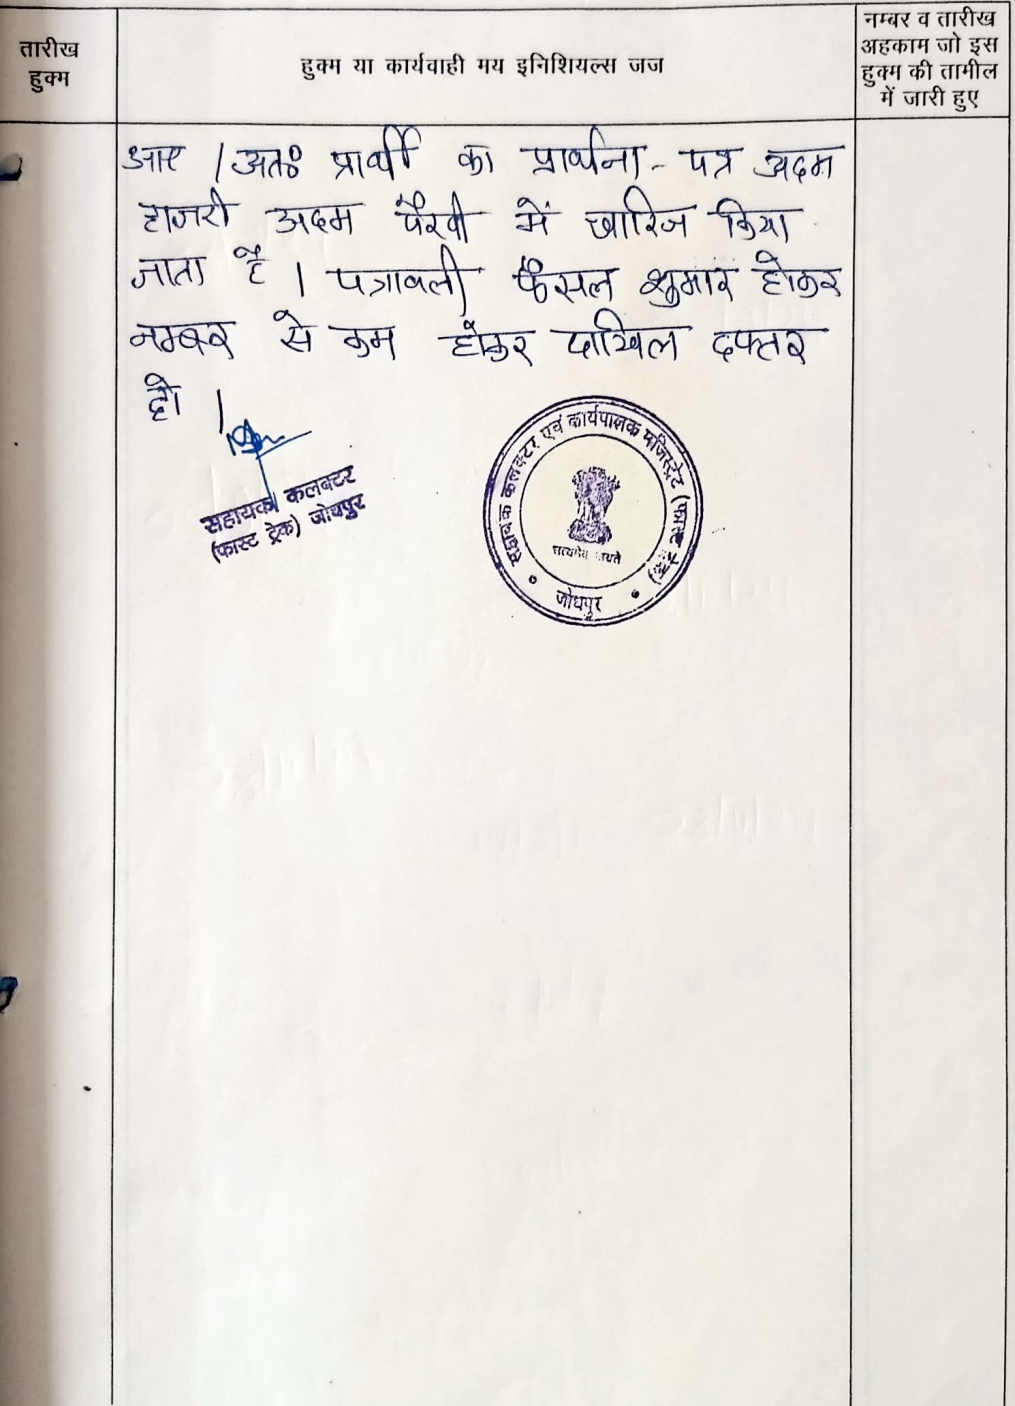 तारीख
हुक्म
हुक्म या कार्यवाही मय इनिशियल्स जज
नम्बर व तारीख
अहकाम जो इस
हुक्म की तामील
में जारी हुए
आए । अतः प्रार्थी का प्रार्थना - पत्र अदम
हाजरी अदम पैरवी में खारिज किया
जाता है । पत्रावली फैसल शुमार होकर
नम्बर से कम होकर दाखिल दफ्तर
हो ।
सहायक कलक्टर
(फास्ट ट्रेक) जोधपुर
सहायक कलक्टर एवं कार्यपालक मजिस्ट्रेट (फास्ट ट्रेक)
सत्यमेव जयते
जोधपुर